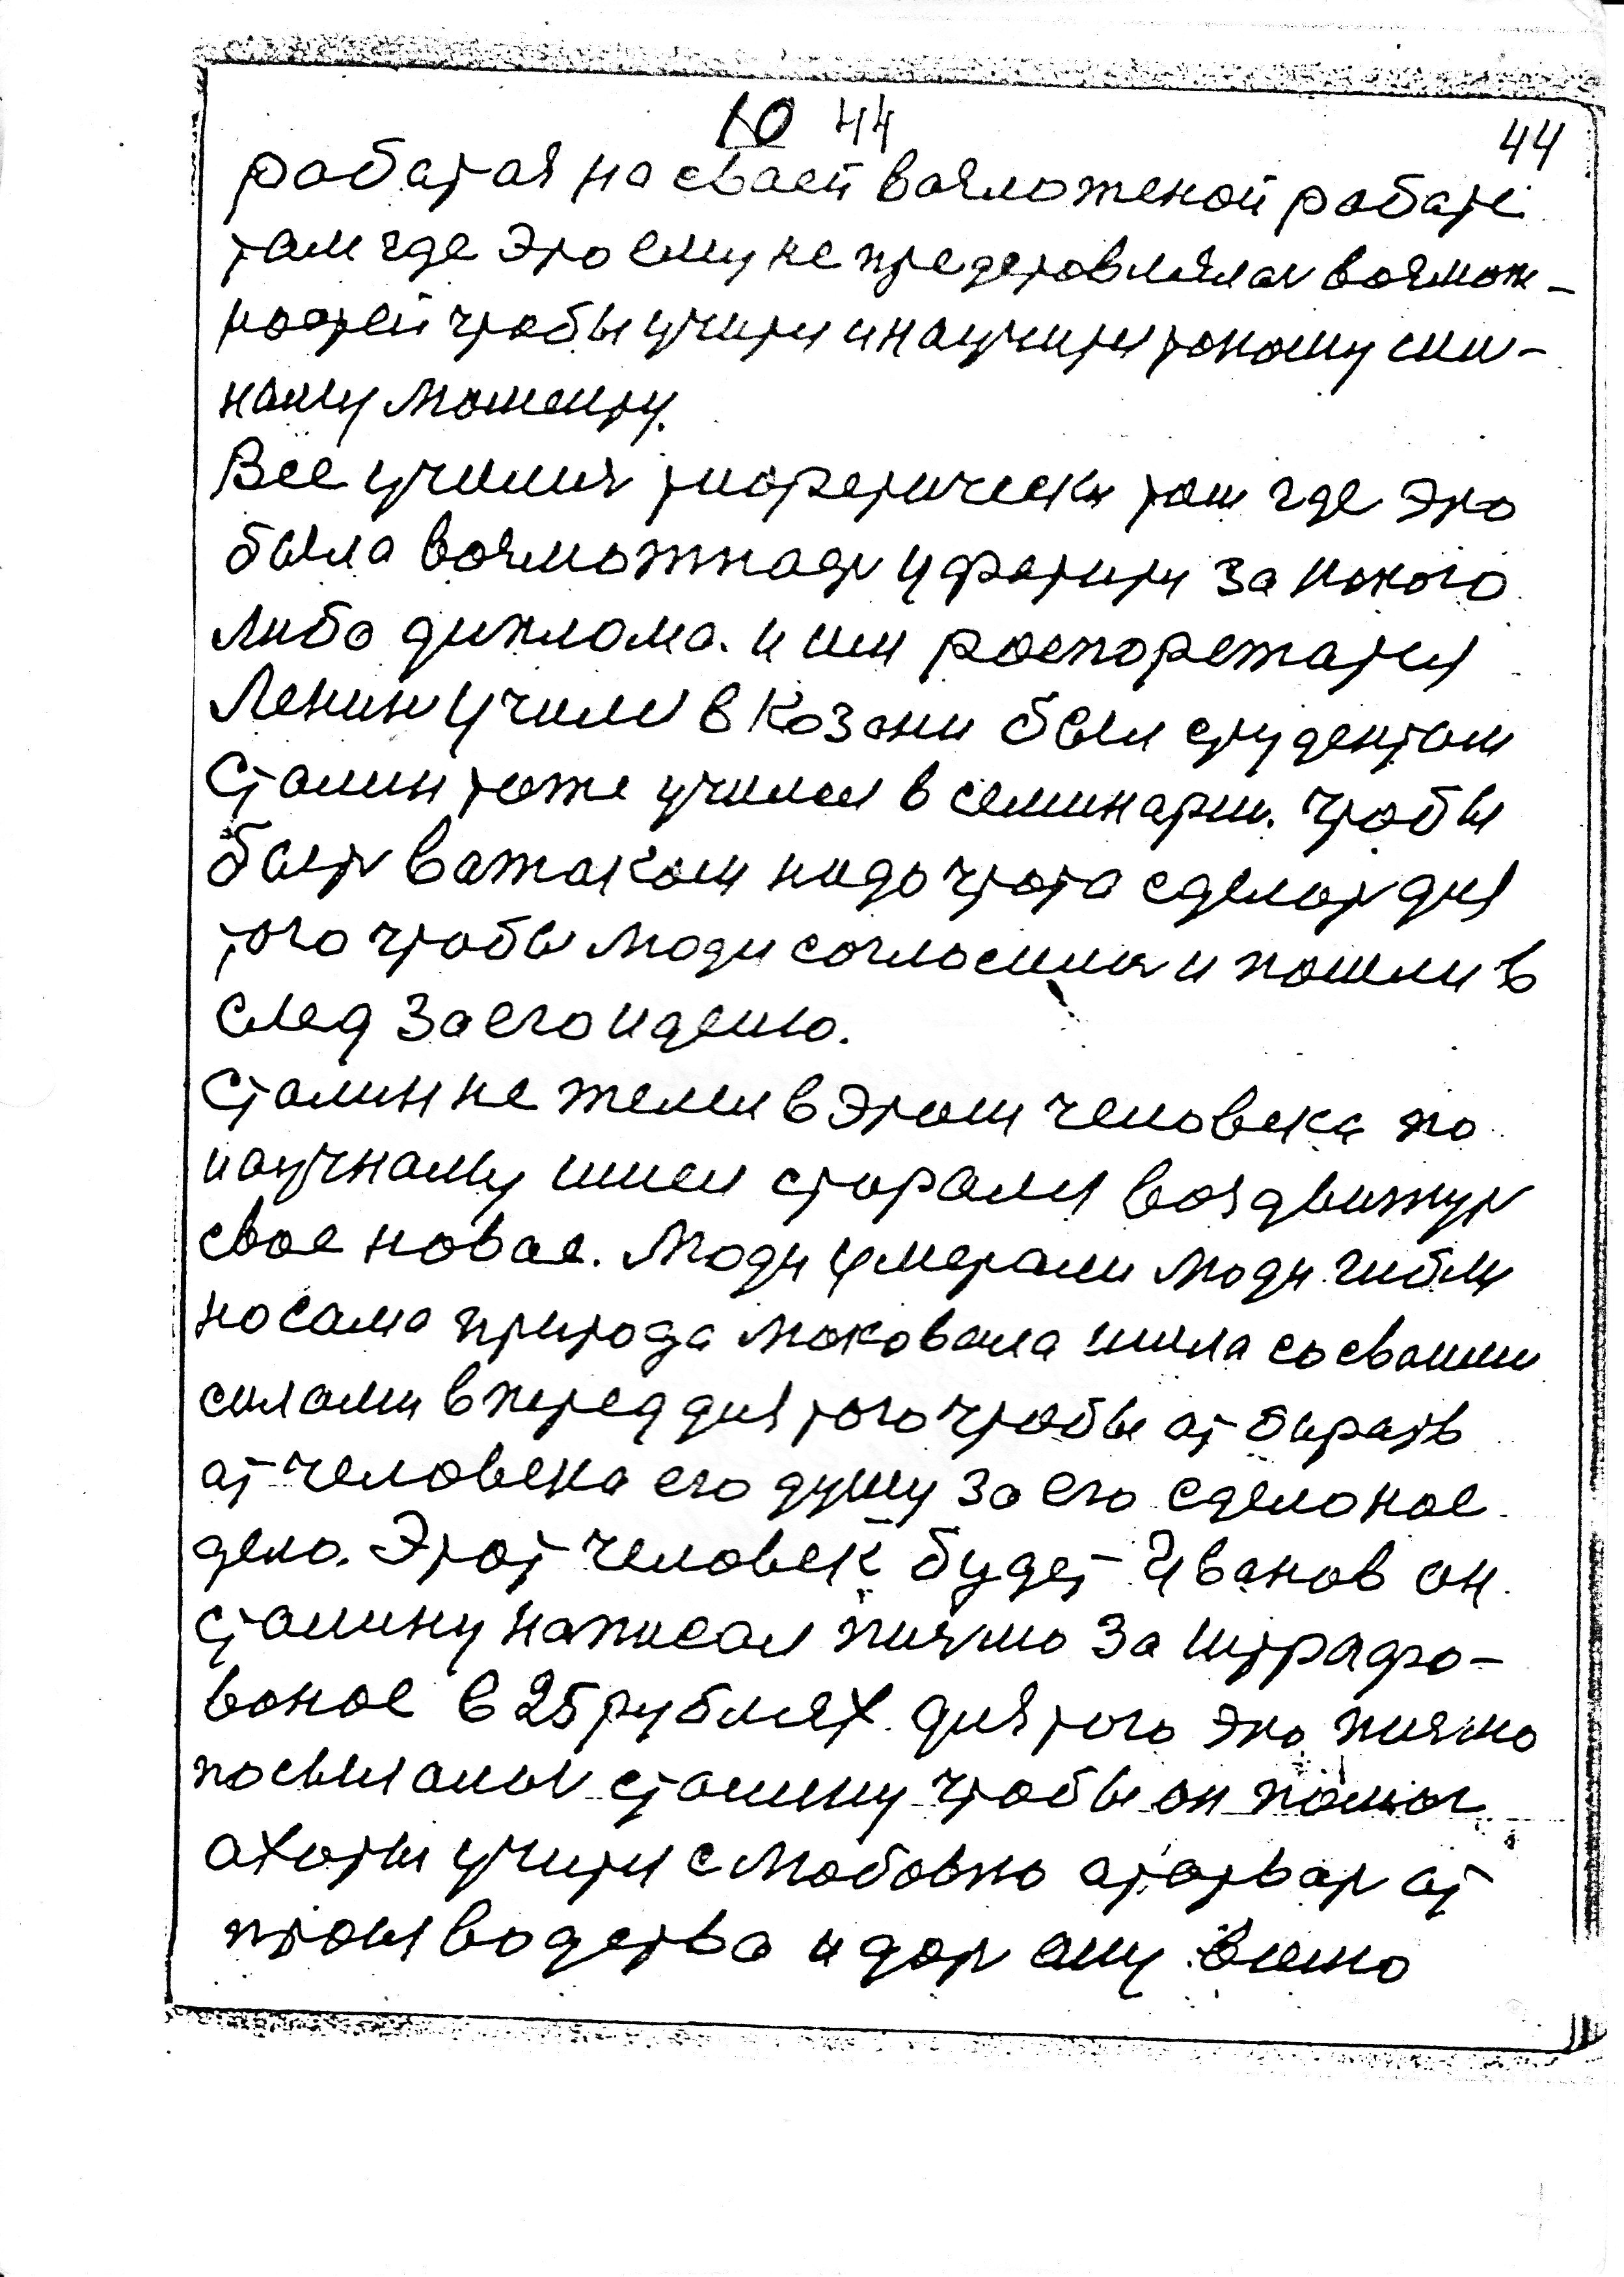 10 44 44
работая на сваей возложеной работе
там где Это ему не представлялас возмож-
ностей чтобы учитя и научитя такому сил-
наму моменту.
Все училис тиоретически там где Это
была возможнасть ухватитя за какого
либо диплома. и им распорежатся
Ленин училс в Казани был студентам
Сталин тоже учился в семинарии. чтобы
быть важаком надо чтота сделать для
того чтобы люди согласилис и пошли в
след за его идеию.
Сталин не желел в Этом человека по
научнаму шнел старался воздвижуть
свое новае. Люди умерали люди гибли
но сама природа атаковала шла со сваими
силами вперед для того чтобы ат бирать
ат человека его душу за его сделоное
дело. Этот человек будет Иванов он
сталину написал писмо за штрафо-
ваное в 25 рублях для того Это писмо
посылалас сталину чтобы он помог
ахоты учитя с любовю атарвать ат
производства и дать ему